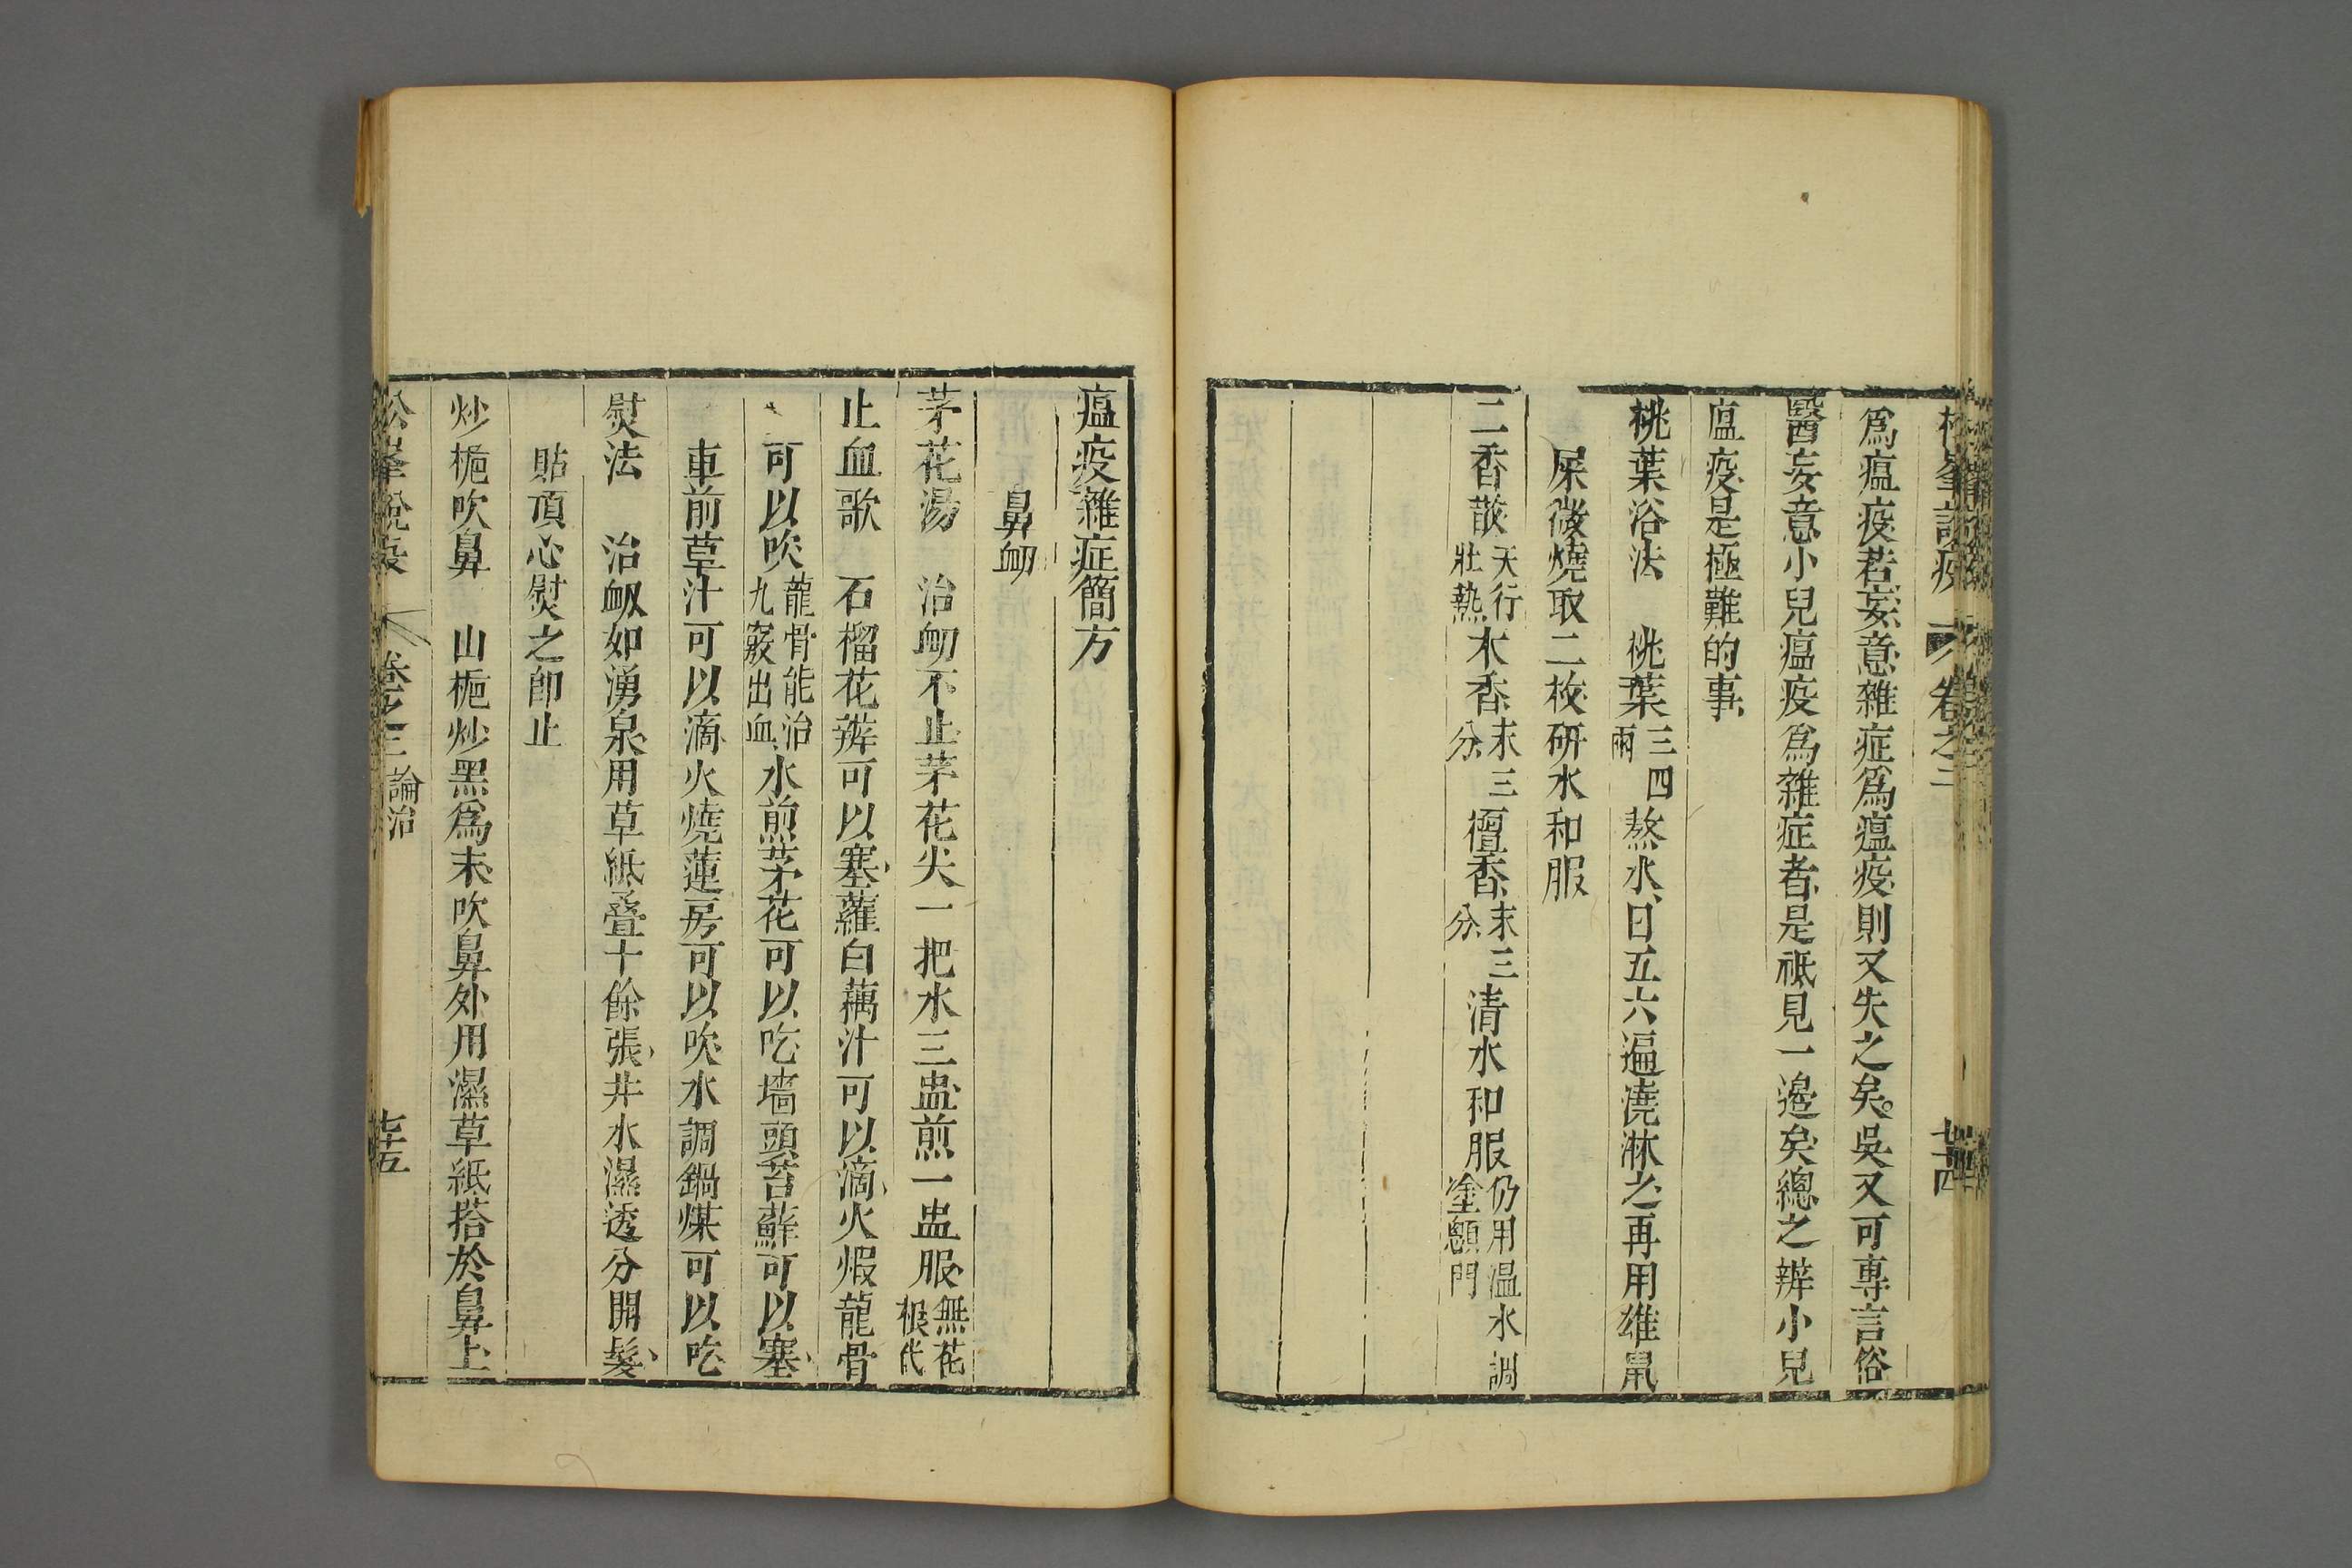 松峯説疫 卷之三 七十四
爲瘟疫若妄意雜症爲瘟疫則又失之矣吳又可專言俗
醫妄意小兒瘟疫爲雜症者是祗見一邊矣總之辨小兒
瘟疫是極難的事
桃葉浴法 桃葉三四兩熬水日五六遍澆淋之再用雄鼠
屎微燒取二枚研水和服
二香散天行壯熱木香末三分檀香末三分清水和服仍用温水調塗顖門
瘟疫雜症簡方
鼻衂
茅花湯 治衂不止茅花尖一把水三盅煎一盅服無花根代
止血歌 石榴花辦可以塞蘿白藕汁可以滴火煆龍骨
可以吹龍骨能治九竅出血水煎茅花可以吃墻頭苔蘚可以塞
車前草汁可以滴火燒蓮房可以吹水調鍋煤可以吃
熨法 治衂如湧泉用草紙叠十餘張井水濕透分開髮
貼頂心熨之即止
炒梔吹鼻 山梔炒黑爲末吹鼻外用濕草紙搭於鼻上
松峯説疫 卷之三論治 七十五